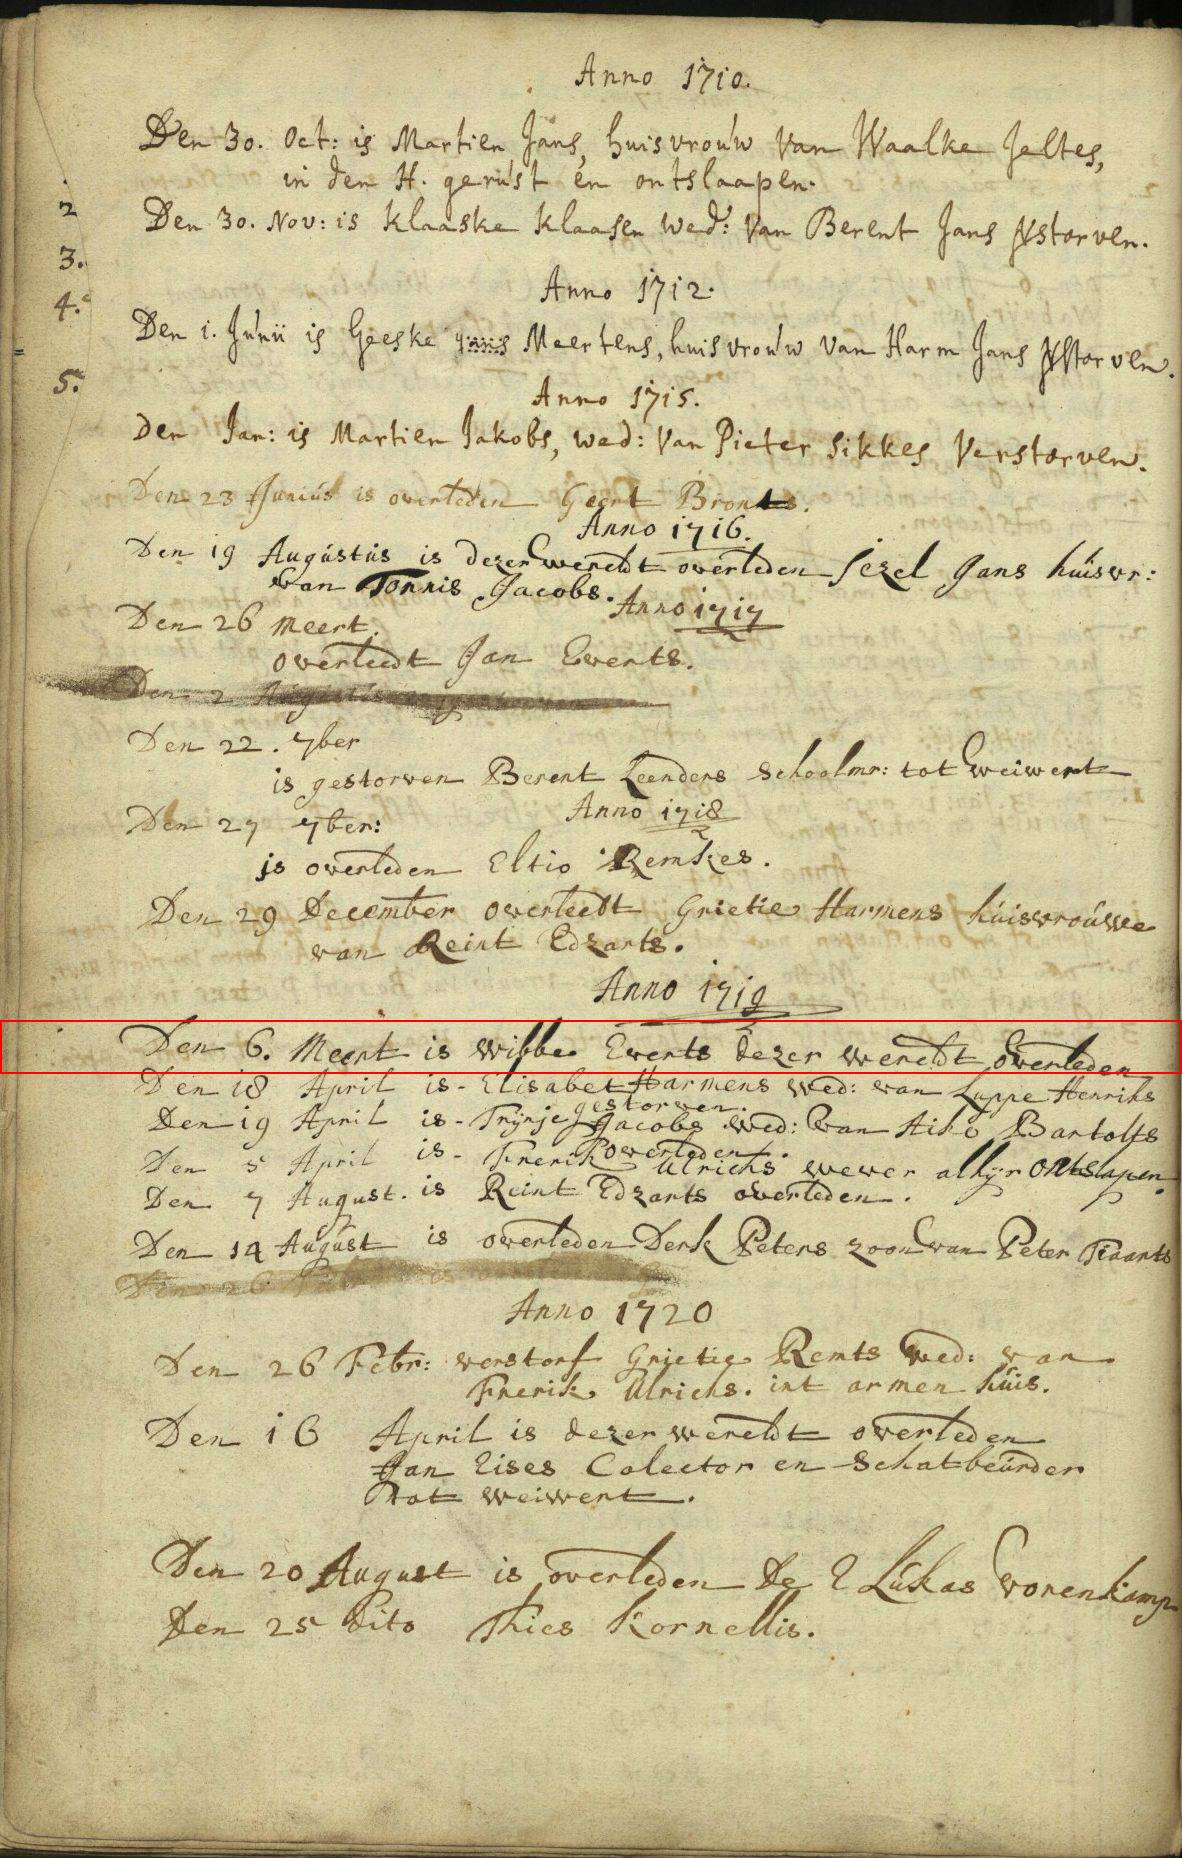 Anno 1710.
Den 30. Oct: is Martien Jans, huisvrouw van Waalke Jeltes,
in den H. gerust en ontslaapen.
2
Den 30. Nov: is Klaaske Klaasen wed: van Berent Jans verstorven.
3.
Anno 1712.
4.
Den 1. Junii is Geeske Meertens, huisvrouw van Harm Jans verstorven.
5.
Anno 1715.
Den Jan: is Martien Jakobs, wed: van Pieter Sikkes verstorven.
Den 23 Junius is overleden Geert Bronts.
Anno 1716.
Den 19 Augustus is dezer wereldt overleden Jezel Jans huisvr:
van Tonnis Jacobs.
Anno 1717
Den 26 Meert
overleedt Jan Everts.
Den 2 Augustus
Den 22. 7ber
is gestorven Berent Leenders schoolmr: tot weiwert
Anno 1718
Den 27 7ber:
is overleden Eltio Remkes.
Den 29 December overleedt Grietie Harmens huisvrouwe
van Reint Edzarts.
Anno 1719
Den 6. Meert is wibbe Everts dezer wereldt overleden
Den 18 April is - Elisabet Harmens wed: van Luppe Henriks
gestorven.
Den 19 April is - Trijnje Jacobs wed: van Aiko Bartolfs
overleden.
Den 5 April is - Frerik Ulrichs wever alhijr ontslapen.
Den 7 August. is Reint Edzarts overleden.
Den 14 August is overleden Derk Peters zoon van Peter Tiaarts
Den 26
Anno 1720
Den 26 Febr: verstorf Grietie Remts wed: van
Frerik Ulrichs. int armen huis.
Den 16 April is dezer wereldt overleden
Jan Eises Colector en schatbeurder
tot weiwert.
Den 20 August is overleden de E Lukas vorenkamp
Den 25 dito Thies Kornellis.